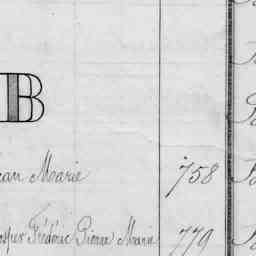 B
ean Marie 758
osper Frédéric Pierre Marie 779